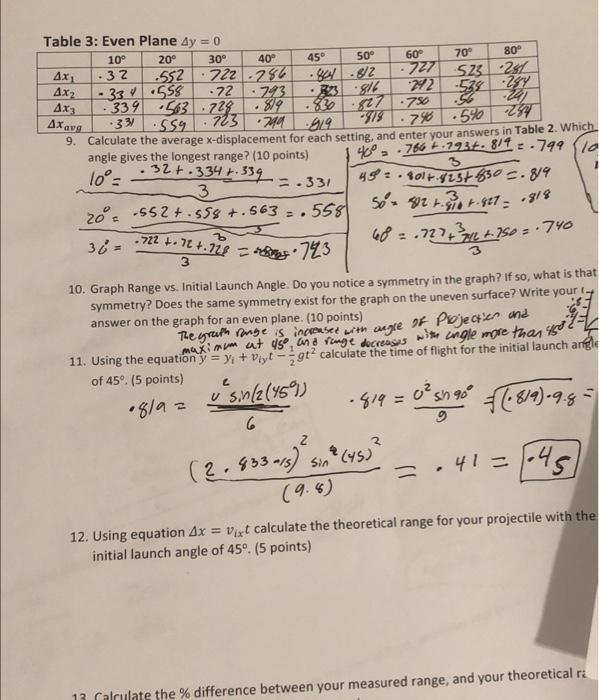 Table 3: Even Plane Δy = 0
10° 20° 30° 40° 45° 50° 60° 70° 80°
Δx₁ .32 .552 .722 .786 .801 .812 .727 .523 .281
Δx₂ .334 .558 .72 .793 .823 .816 .742 .538 .284
Δx₃ .339 .563 .728 .819 .830 .827 .750 .56 .291
Δxavg .331 .559 .723 .799 .819 .818 .740 .540 .284
9. Calculate the average x-displacement for each setting, and enter your answers in Table 2. Which
angle gives the longest range? (10 points)
40° = .786 + .793 + .819 = .799
3
10° = .32 + .334 + .339 = .331
3
45° = .801 + .823 + .830 = .819
3
20° = .552 + .558 + .563 = .558
3
50° = .812 + .816 + .827 = .818
3
30 = .722 + .72 + .728 = .723
3
60 = .727 + .742 + .750 = .740
3
10. Graph Range vs. Initial Launch Angle. Do you notice a symmetry in the graph? If so, what is that
symmetry? Does the same symmetry exist for the graph on the uneven surface? Write your
answer on the graph for an even plane. (10 points)
The graph range is increased with angle of Projection and
maximum at 45°, and range decreases with angle more than 45°
11. Using the equation y = yᵢ + vᵢyt − ½gt² calculate the time of flight for the initial launch angle
of 45°. (5 points)
.819 = v² sin(2(45°))
6
.819 = v² sin 90° = √(.819)·9.8 =
g
(2.833 m/s)² sin²(45)² = .41 = .4s
(9.8)
12. Using equation Δx = vᵢₓt calculate the theoretical range for your projectile with the
initial launch angle of 45°. (5 points)
13. Calculate the % difference between your measured range, and your theoretical